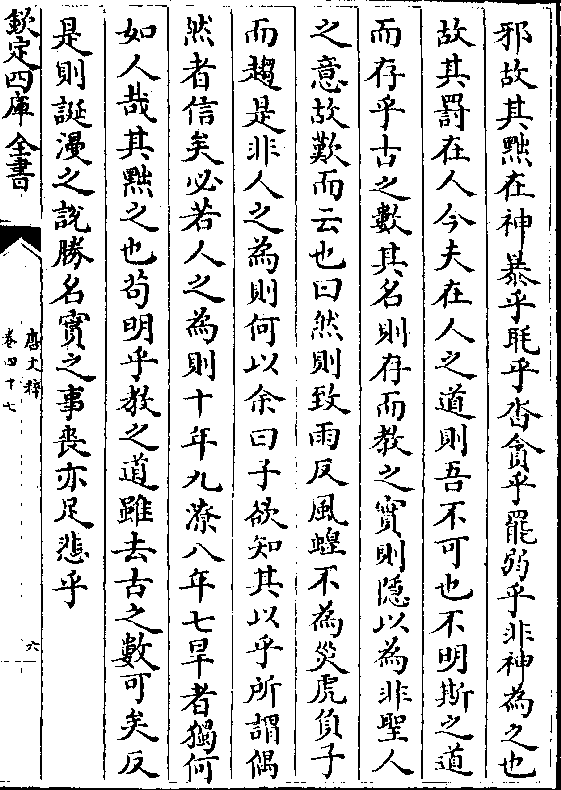 邪故其黜在神暴乎眊乎沓貪乎罷弱乎非神為之也
故其罰在人今夫在人之道則吾不可也不明斯之道
而存乎古之數其名則存而教之實則隱以為非聖人
之意故歎而云也曰然則致雨反風蝗不為災虎負子
而趨是非人之為則何以余曰子欲知其以乎所謂偶
然者信矣必若人之為則十年九潦八年七旱者獨何
如人哉其黜之也苟明乎教之道雖去古之數可矣反
是則誕漫之說勝名實之事喪亦足悲乎
欽定四庫全書
唐文粹
卷四十七
六